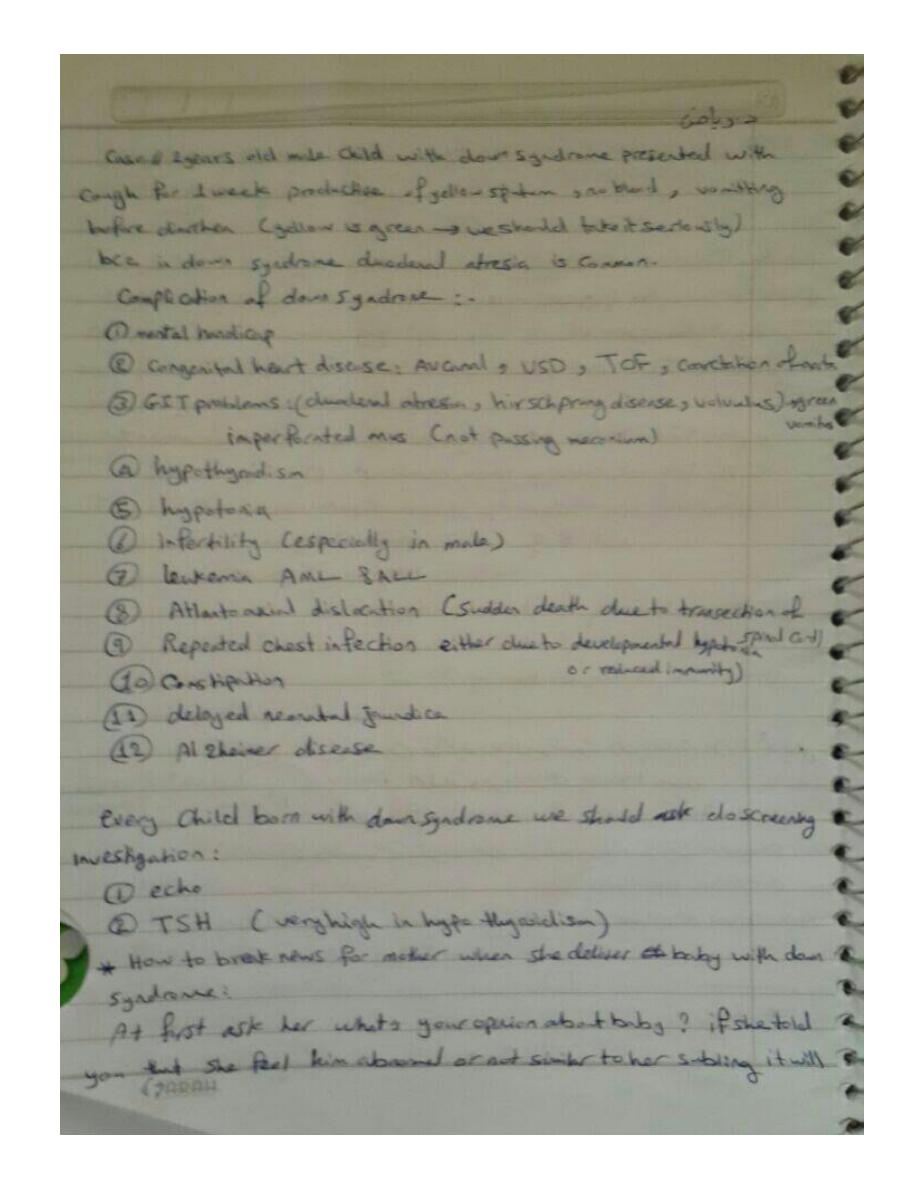 د. رياض
Case # 2 years old male child with down syndrome presented with
cough for 1 week productive of yellow sputum, no blood, vomitting
before diarrhea (yellow is green → we should take it seriously)
bcz in down syndrome duodenal atresia is common.
Complication of down syndrome :-
① mental handicap
② Congenital heart disease: AV canal, VSD, TOF, coarctation of aorta
③ GIT problems: (duodenal atresia, hirschprung disease, volvulus) → green
vomitus
imperforated anus (not passing meconium)
④ hypothyroidism
⑤ hypotonia
⑥ Infertility (especially in male)
⑦ leukemia AML & ALL
⑧ Atlantoaxial dislocation (Sudden death due to transection of
spinal cord)
⑨ Repeated chest infection either due to developmental hypotonia
or reduced immunity)
⑩ Constipation
⑪ delayed neonatal jaundice
⑫ Alzheimer disease
Every Child born with down syndrome we should ask do screening
investigation:
① echo
② TSH (very high in hypothyroidism)
* How to break news for mother when she deliver baby with down
syndrome:
At first ask her whats your opinion about baby? if she told
you that she feel him abnormal or not similar to her subling it will
SARAH